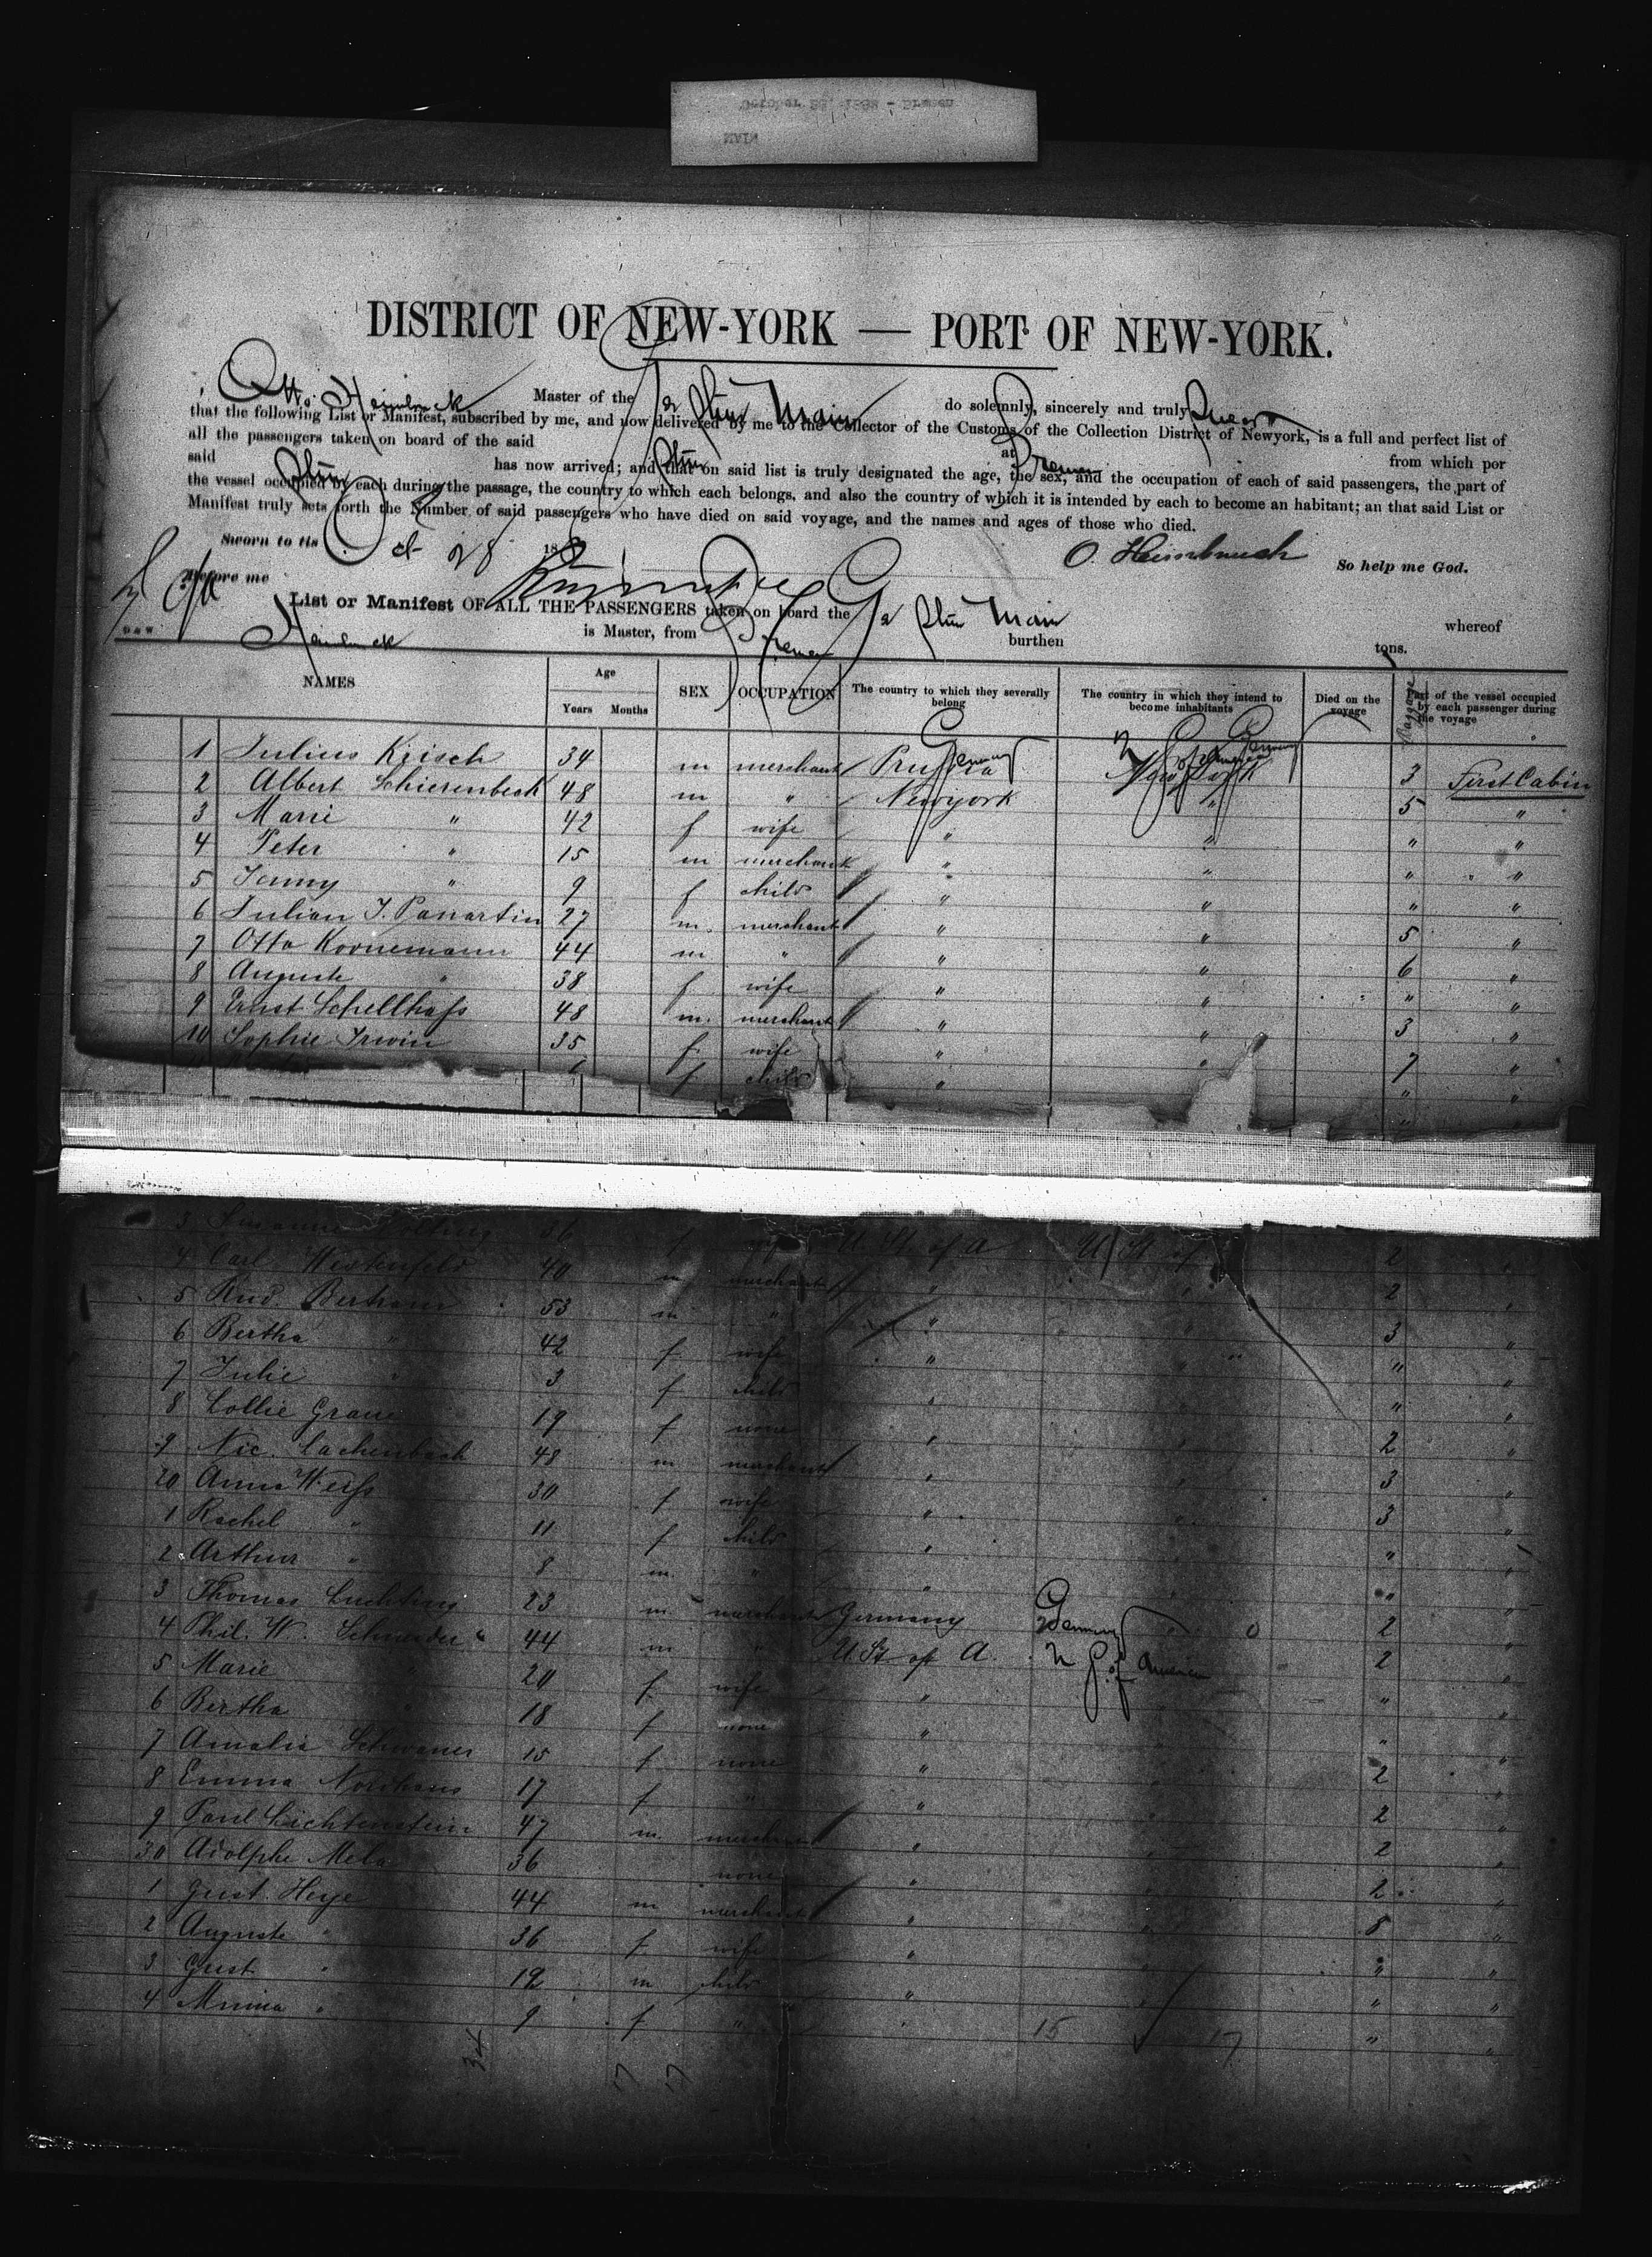 October 28, 1882 - Bremen
MAIN
DISTRICT OF NEW-YORK — PORT OF NEW-YORK.
I, Otto Heimbruch Master of the Ge Str Main do solemnly, sincerely and truly Swear
that the following List or Manifest, subscribed by me, and now delivered by me to the Collector of the Customs of the Collection District of Newyork, is a full and perfect list of
all the passengers taken on board of the said Str at Bremen from which por
said Str has now arrived; and that on said list is truly designated the age, the sex, and the occupation of each of said passengers, the part of
the vessel occupied by each during the passage, the country to which each belongs, and also the country of which it is intended by each to become an habitant; an that said List or
Manifest truly sets forth the Number of said passengers who have died on said voyage, and the names and ages of those who died.
Sworn to tis Oct 28 188 O. Heimbruch So help me God.
Before me
List or Manifest OF ALL THE PASSENGERS taken on board the Ge Str Main whereof
Heimbruch is Master, from Bremen burthen tons.
NAMES Age Years Months SEX OCCUPATION The country to which they severally belong The country in which they intend to become inhabitants Died on the voyage Baggage Part of the vessel occupied by each passenger during the voyage
1 Julius Krisch 34 m merchant Prussia Germany New York Germany 3 First Cabin
2 Albert Schierenbeck 48 m " Newyork " 5 "
3 Marie " 42 f wife " " " "
4 Peter " 15 m merchant " " " "
5 Jenny " 9 f child " " " "
6 Julian J. 27 m. merchant " " 5 "
7 Otto Kornemann 44 m " " " 6 "
8 Auguste " 38 f wife " " " "
9 Ernst Schellhass 48 m. merchant " " 3 "
10 Sophie Irwin 35 f. wife " " 7 "
f child " " "
3 Susanna 36 f U St. of A U St of 2 "
4 Carl Westenfeld 40 m merchant " " 2 "
5 Rud. Bertram 53 m " " " 3 "
6 Bertha " 42 f wife " " " "
7 Julie " 3 f child " " " "
8 Lollie Graue 19 f none " " 2 "
9 Nic. Lachenbach 48 m merchant " " 3 "
20 Anna Weiss 30 f wife " " 3 "
1 Rachel " 11 f child " " " "
2 Arthur " 8 m. " " " " "
3 Thomas Luchting 23 m merchant Germany Germany 2 "
4 Phil. W. Schneider 44 m " U St of A. U S of America 2 "
5 Marie " 20 f. wife " " " "
6 Bertha " 18 f none " " " "
7 Amalia Schwaner 15 f none " " 2 "
8 Emma Nordhaus 17 f " " " 2 "
9 Paul Lichtenstein 47 m. merchant " " 2 "
30 Adolphe Mela 36 none " " 2 "
1 Gust. Heye 44 m merchant " " 8 "
2 Auguste " 36 f wife " " " "
3 Gust. " 12 m child " " " "
4 Minna " 9 f " " " "
34 17 17 15 17